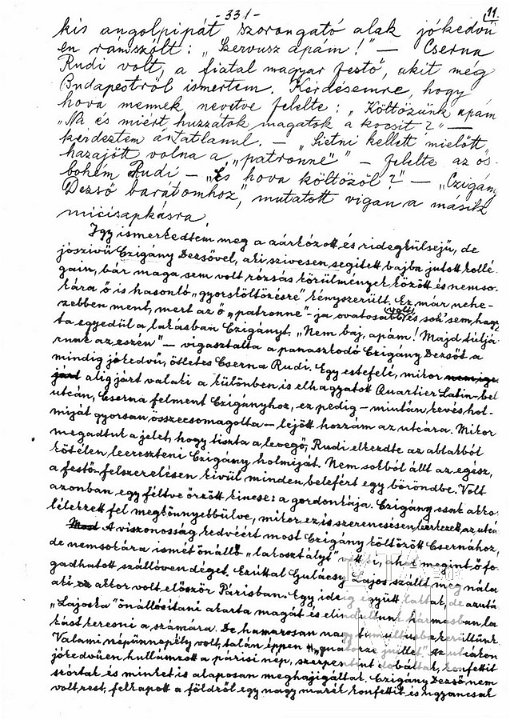 -331-
11.
kis angolpipát szorongató alak jókedvű
en rámszólt: „Szervusz apám!" — Cserna
Rudi volt, a fiatal magyar festő, akit még
Budapestről ismertem. Kérdésemre, hogy
hova mennek nevetve felelte: „Költözünk apám
"Na és miért huzzátok magatok a kocsit?" —
kérdeztem ártatlanul. — „Sietni kellett mielőtt
hazajött volna a „patronne" — felelte az ős-
bohém Rudi — „És hova költözöl?" — „Czigány
Dezső barátomhoz", mutatott vigan a másik
micisapkásra
Igy ismerkedtem meg a zárkózott és ridegkülsejű, de
jószivű Czigány Dezsővel, aki szivesen segitett bajba jutott kollé-
gáin, bár maga sem volt rózsás körülmények között és nemso-
kára ő is hasonló „gyorsköltözésre" kényszerült. Ez már nehe-
zebben ment, mert az ő „patronne"-ja ovatosabb volt és sok sem hagy
ta egyedül a lakásban Czigányt. „Nem baj, apám! Majd tuljá-
runk az eszén" — vigasztalta a panaszkodó Czigány Dezsőt a
mindig jókedvű, ötletes Cserna Rudi. Egy estefelé, mikor
alig járt valaki a különben is elhagyatott Quartier Latin-beli
utcán, Cserna felment Czigányhoz, ez pedig — miután kevés hol-
miját gyorsan összecsomagolta — lejött hozzám az utcára. Mikor
megadtuk a jelet, hogy tiszta a levegő, Rudi elkezdte az ablakból
kötélen leereszteni Czigány holmiját. Nem sokból állt az egész,
a festő-felszerelésen kivül minden belefért egy bőröndbe. Volt
azonban egy féltve őrzött kincse: a gordonkája. Czigány csak akkor
lélekzett fel megkönnyebbülve, mikor ez is szerencsésen leérkezett az utcára
A viszonosság kedvéért most Czigány költözött Csernához,
de nemsokára ismét önálló „lakosztályt" ahol megint ő fo-
gadhatott szállóvendéget. Ezúttal Gulácsy Lajos szállt meg nála
aki akkor volt először Párisban. Egy ideig együtt laktak, de azután
„Lajoska" önállósitani akarta magát és elindultunk hármasban la-
kást keresni a számára. De hamarosan nagy tumultusba kerültünk.
Valami népünnepély volt, talán éppen „quatorze juillet". Az utcákon
jókedvűen hullámzott a párisi nép, szerpentint dobáltak, konfettit
szórtak és minket is alaposan meghajigáltak. Czigány Dezső, nem
volt rest, felkapott a földről egy nagy marék konfettit és ugyancsak